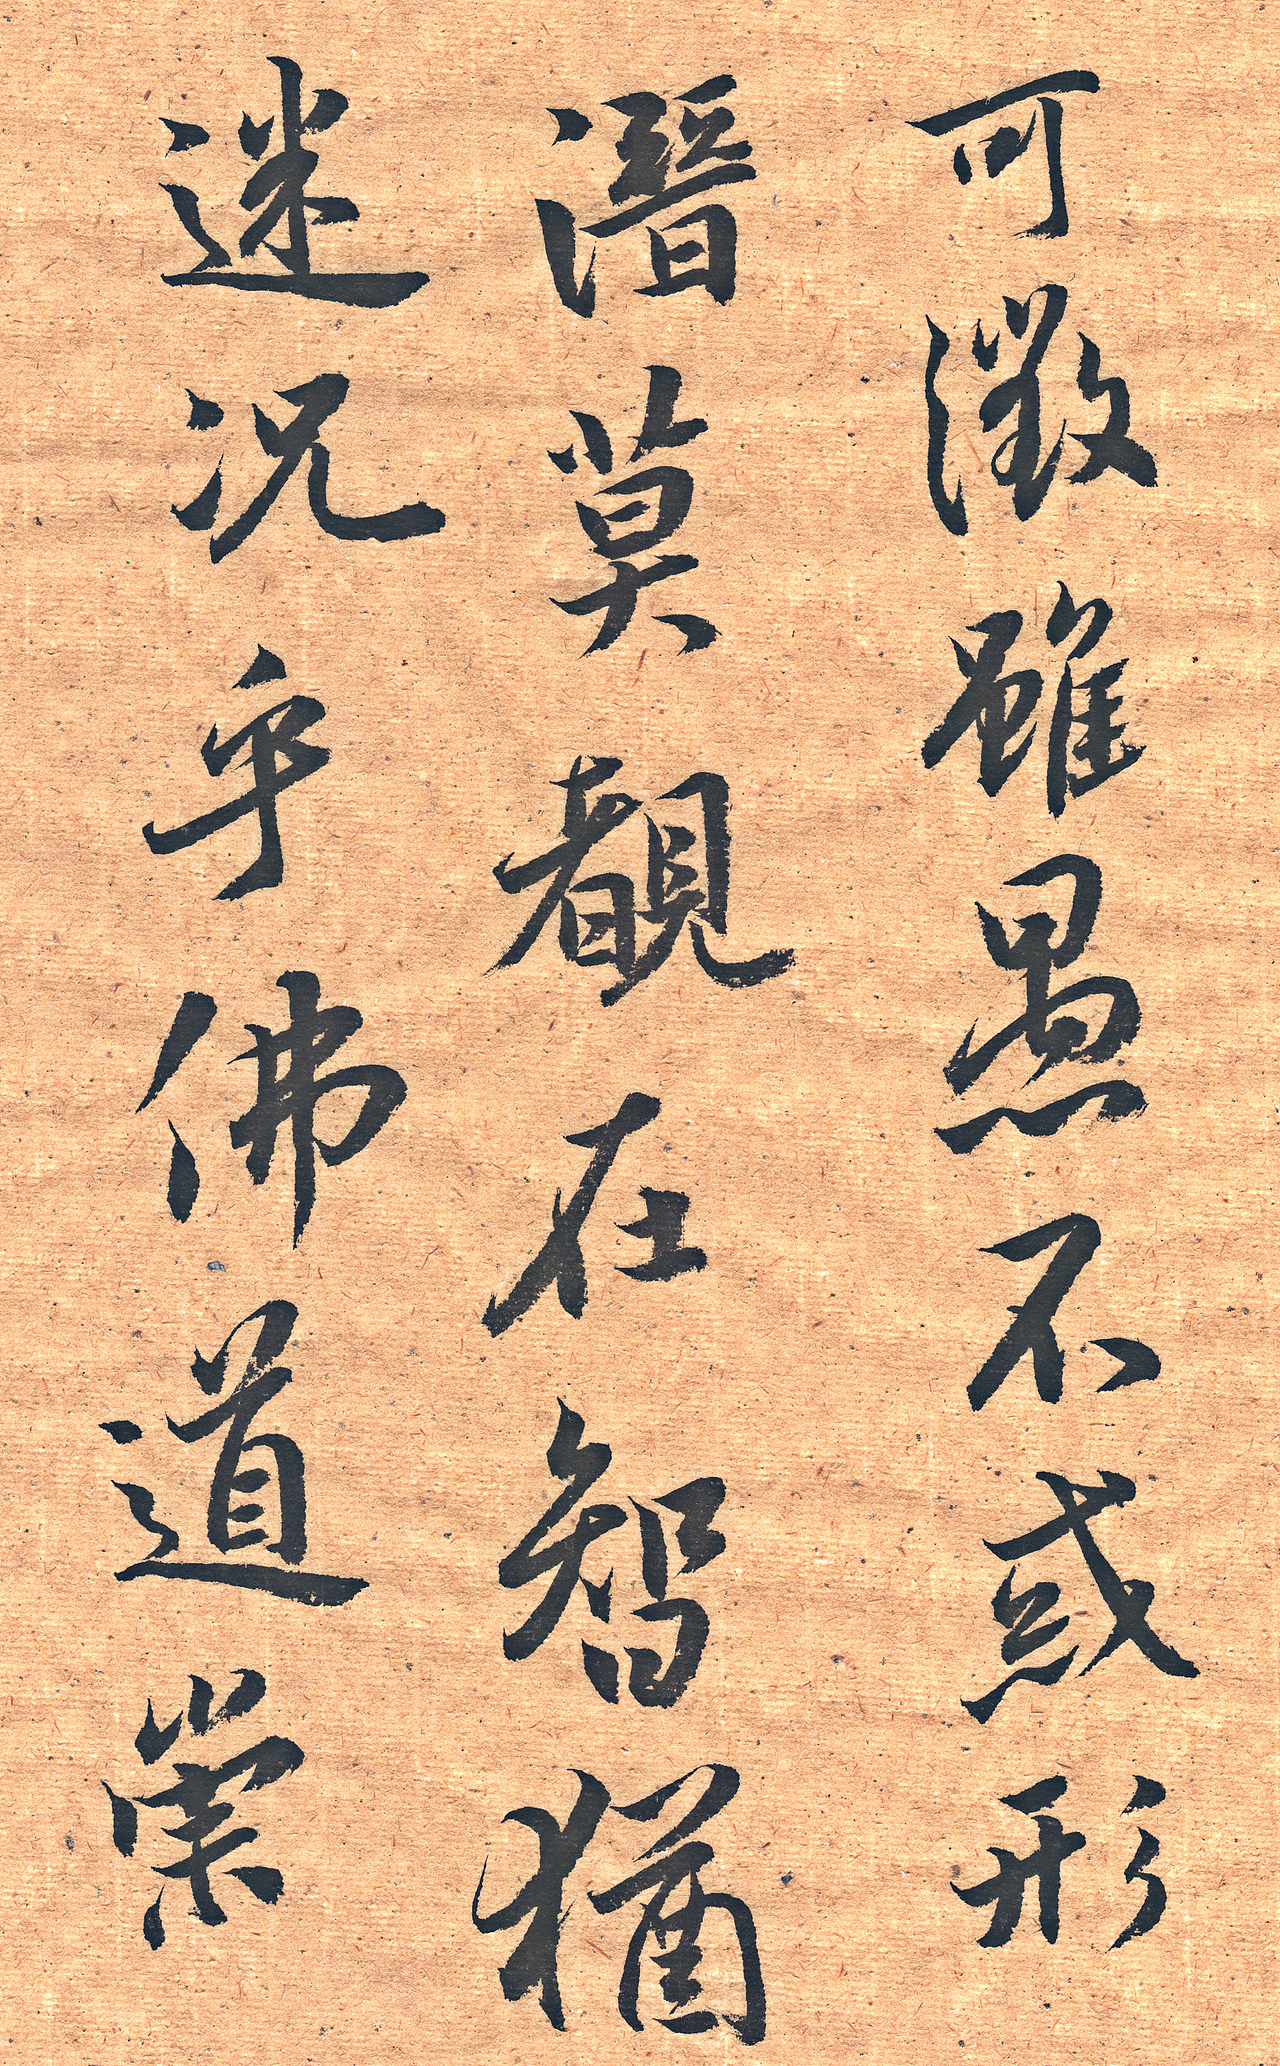 可徵雖愚不惑形
潛莫覩在智猶
迷况乎佛道崇